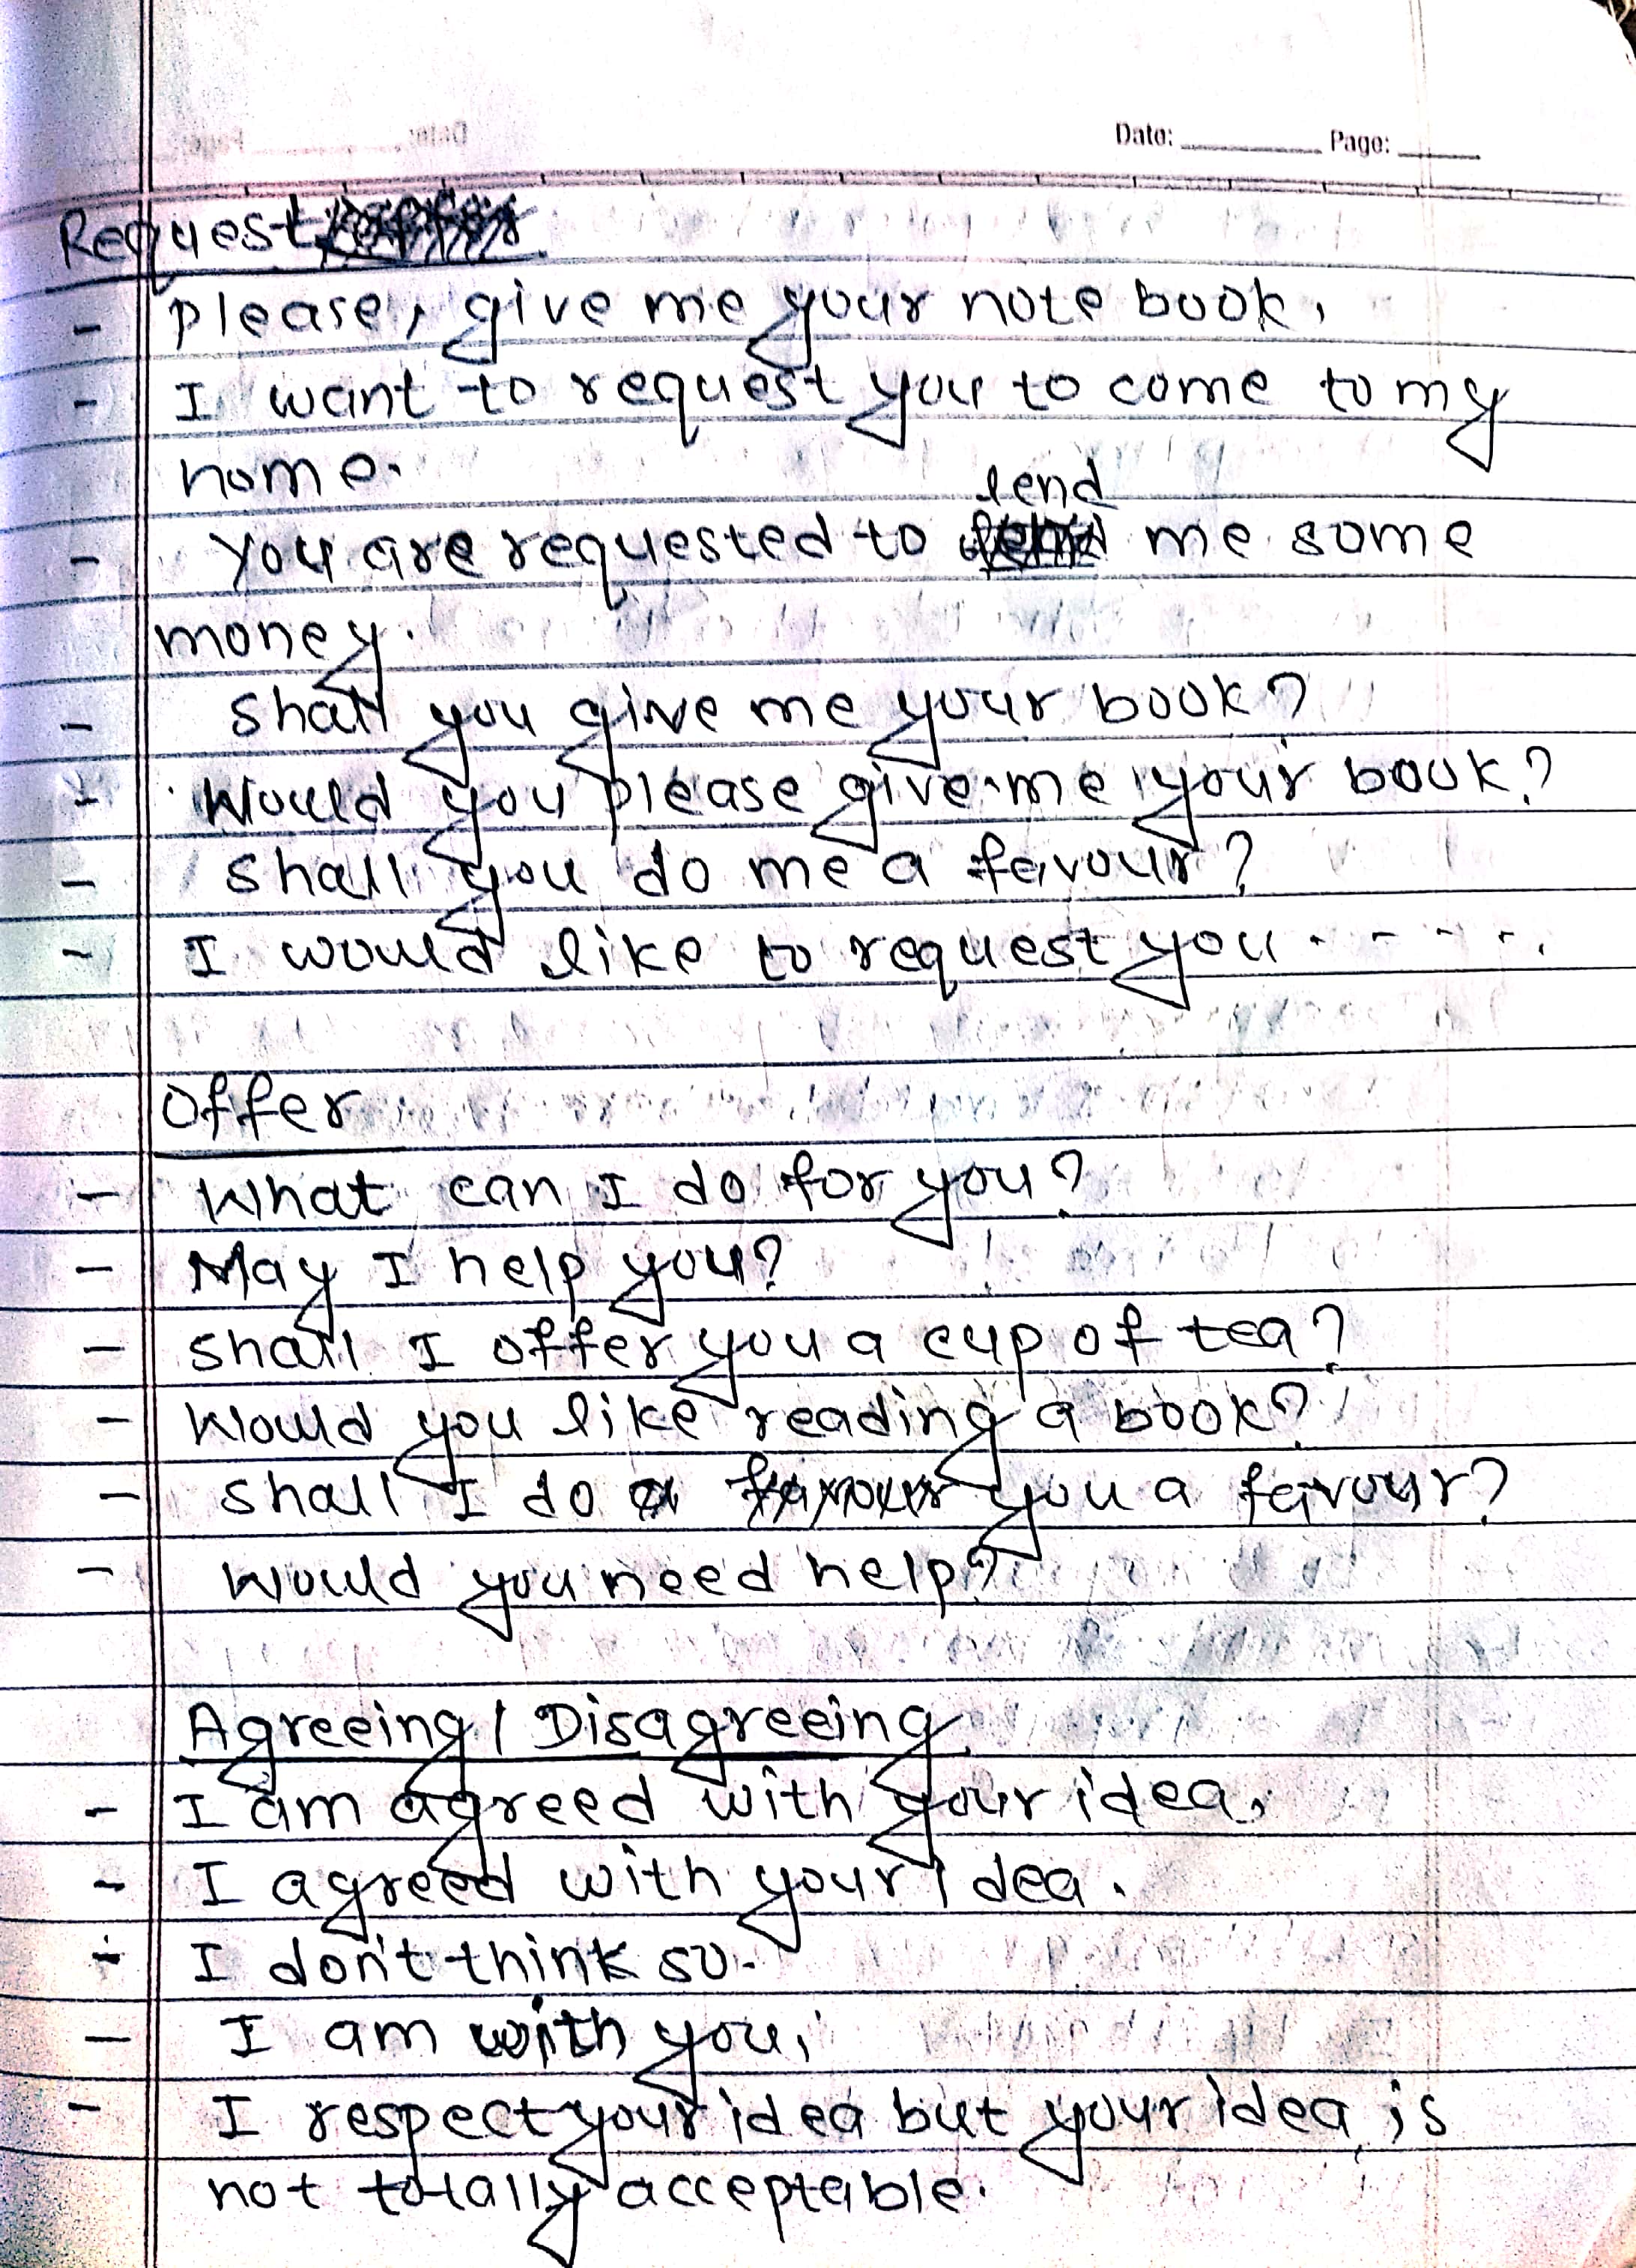 Date: Page:
Request
- please, give me your note book.
- I want to request you to come to my
home.
lend
- you are requested to me some
money.
- shall you give me your book?
- Would you please give me your book?
- shall you do me a favour?
- I would like to request you - - - - .
Offer
- What can I do for you?
- May I help you?
- shall I offer you a cup of tea?
- Would you like reading a book?
- shall I do you a favour?
- Would you need help?
Agreeing / Disagreeing
- I am agreed with your idea.
- I agreed with your idea.
- I don't think so.
- I am with you.
- I respect your idea but your idea is
not totally acceptable.